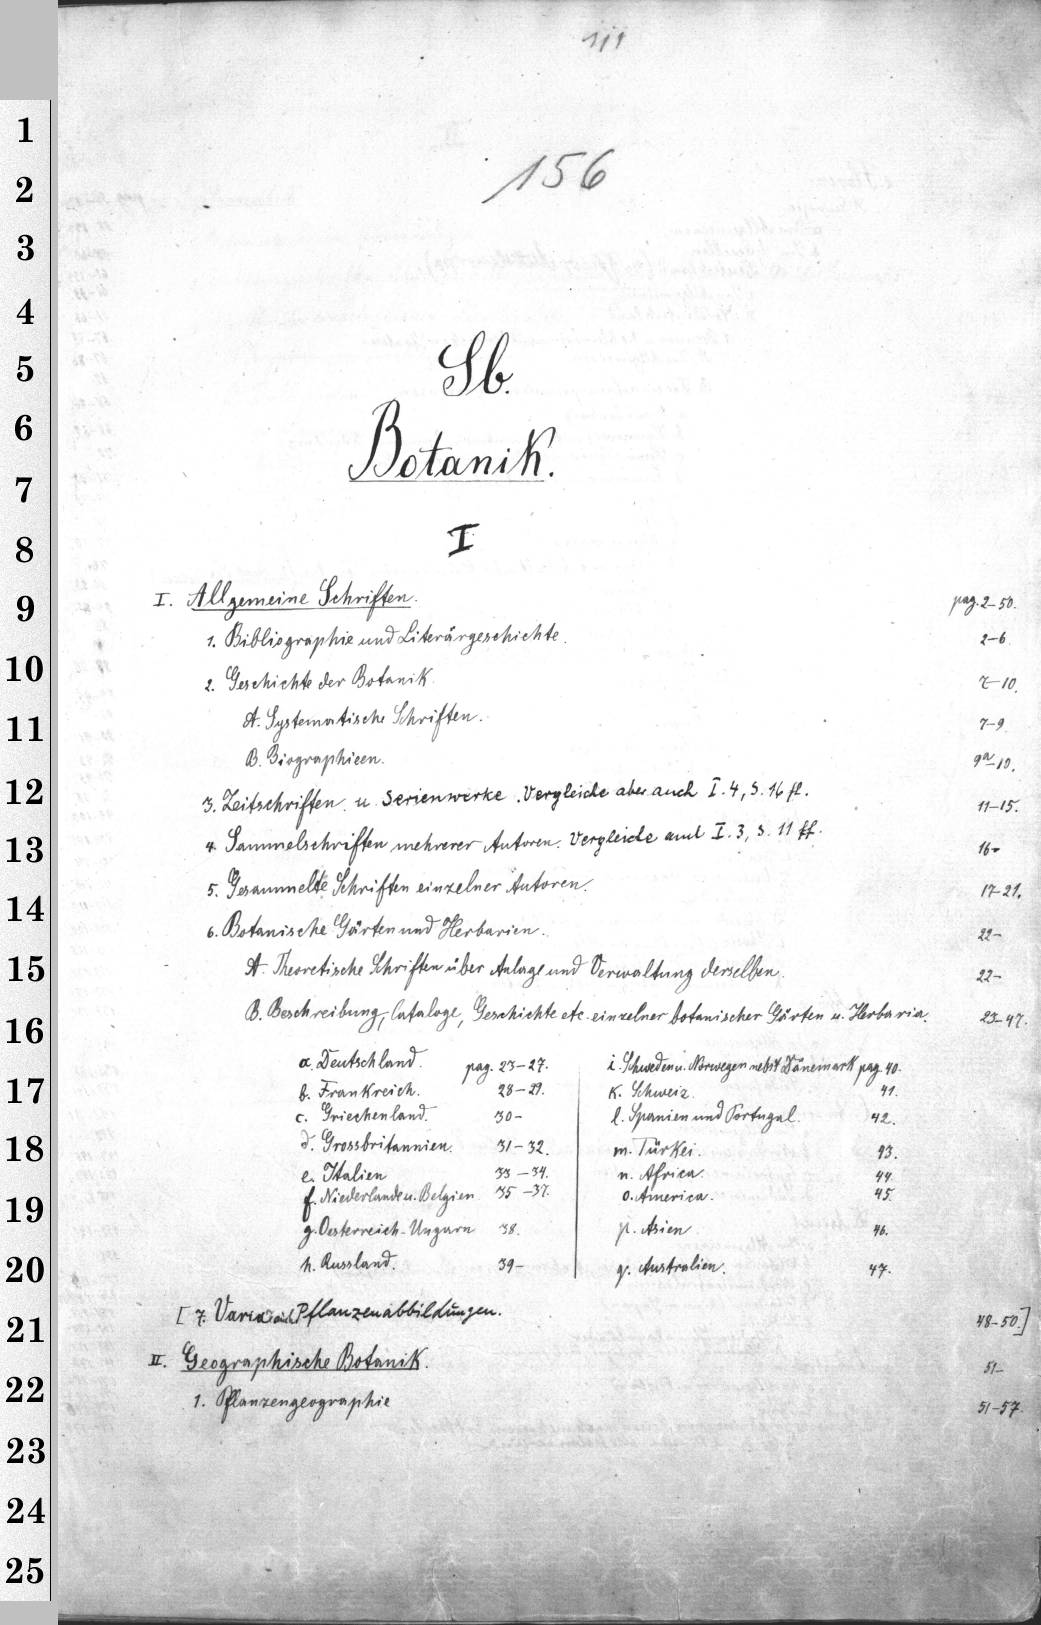 1
2
3
4
5
6
7
8
9
10
11
12
13
14
15
16
17
18
19
20
21
22
23
24
25
156
Sb.
Botanik.
I
I. Allgemeine Schriften. pag. 2-50.
1. Bibliographie und Literärgeschichte. 2-6
2. Geschichte der Botanik. 7-10.
A. Systematische Schriften. 7-9
B. Biographieen. 9a-10.
3. Zeitschriften u. Serienwerke. Vergleiche aber auch I. 4, S. 16 ff. 11-15.
4. Sammelschriften mehrerer Autoren. Vergleiche auch I. 3, S. 11 ff. 16-
5. Gesammelte Schriften einzelner Autoren. 17-21.
6. Botanische Gärten und Herbarien. 22-
A. Theoretische Schriften über Anlage und Verwaltung derselben. 22-
B. Beschreibung, Cataloge, Geschichte etc. einzelner botanischer Gärten u. Herbaria. 23-47.
a. Deutschland. pag. 23-27.
b. Frankreich. 28-29.
c. Griechenland. 30-
d. Grossbritannien. 31-32.
e. Italien 33-34.
f. Niederlande u. Belgien 35-37.
g. Oesterreich-Ungarn 38.
h. Russland. 39-
i. Schweden u. Norwegen nebst Dänemark pag. 40.
k. Schweiz. 41.
l. Spanien und Portugal. 42.
m. Türkei. 43.
n. Africa. 44
o. America. 45.
p. Asien 46.
q. Australien. 47.
[7. Varia Pflanzenabbildungen. 48-50.]
II. Geographische Botanik. 51-
1. Pflanzengeographie 51-57.